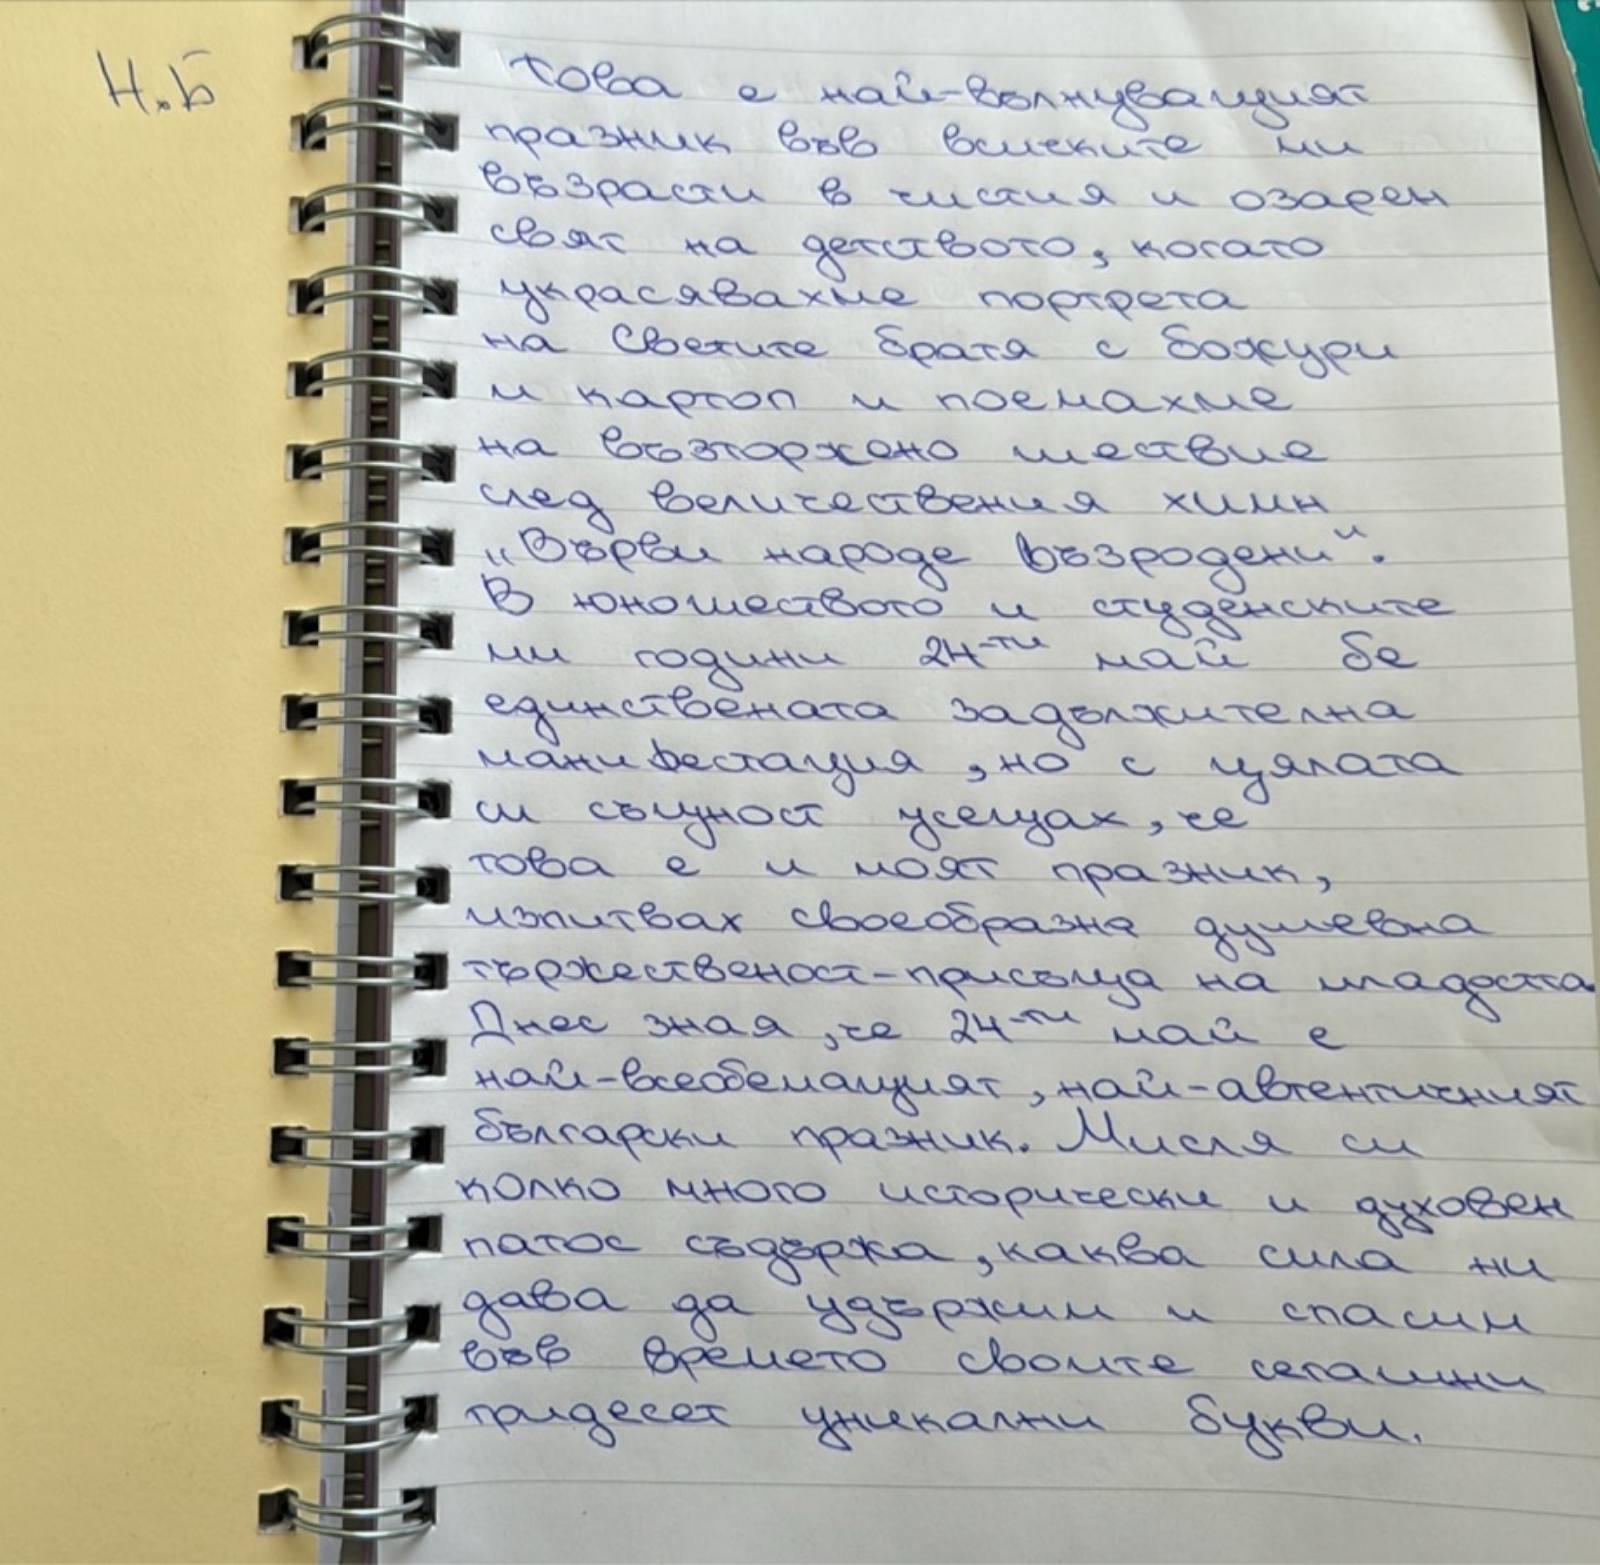 Н.Б
това е най-вълнуващият
празник във всичките ми
възрасти в чистия и озарен
свят на детството, когато
украсявахме портрета
на Светите братя с божури
и картоп и поемахме
на възторжено шествие
след величествения химн
„Върви народе възродени".
В юношеството и студенските
ми години 24-ти май бе
единствената задължителна
манифестация, но с цялата
си същност усещах, че
това е и моят празник,
изпитвах своеобразна душевна
тържественост-присъща на младостта.
Днес зная, че 24-ти май е
най-всеобемащият, най-автентичният
български празник. Мисля си
колко много исторически и духовен
патос съдържа, каква сила ни
дава да удържим и спасим
във времето своите сегашни
тридесет уникални букви.